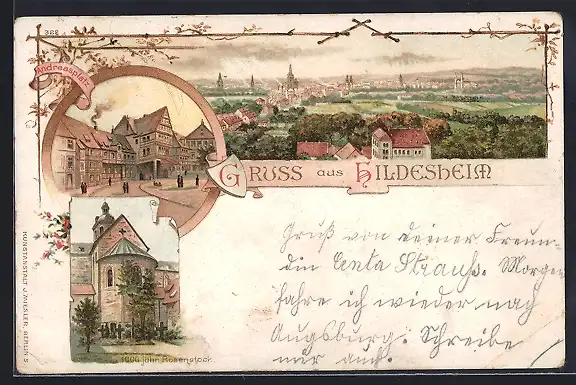 368
Andreasplatz
GRUSS aus HILDESHEIM
Gruß von deiner Freun-
din Centa Strauß. Morgen
fahre ich wieder nach
Augsburg. Schreibe
mir auch.
1000 jähr. Rosenstock.
KUNSTANSTALT J. MIESLER, BERLIN S.